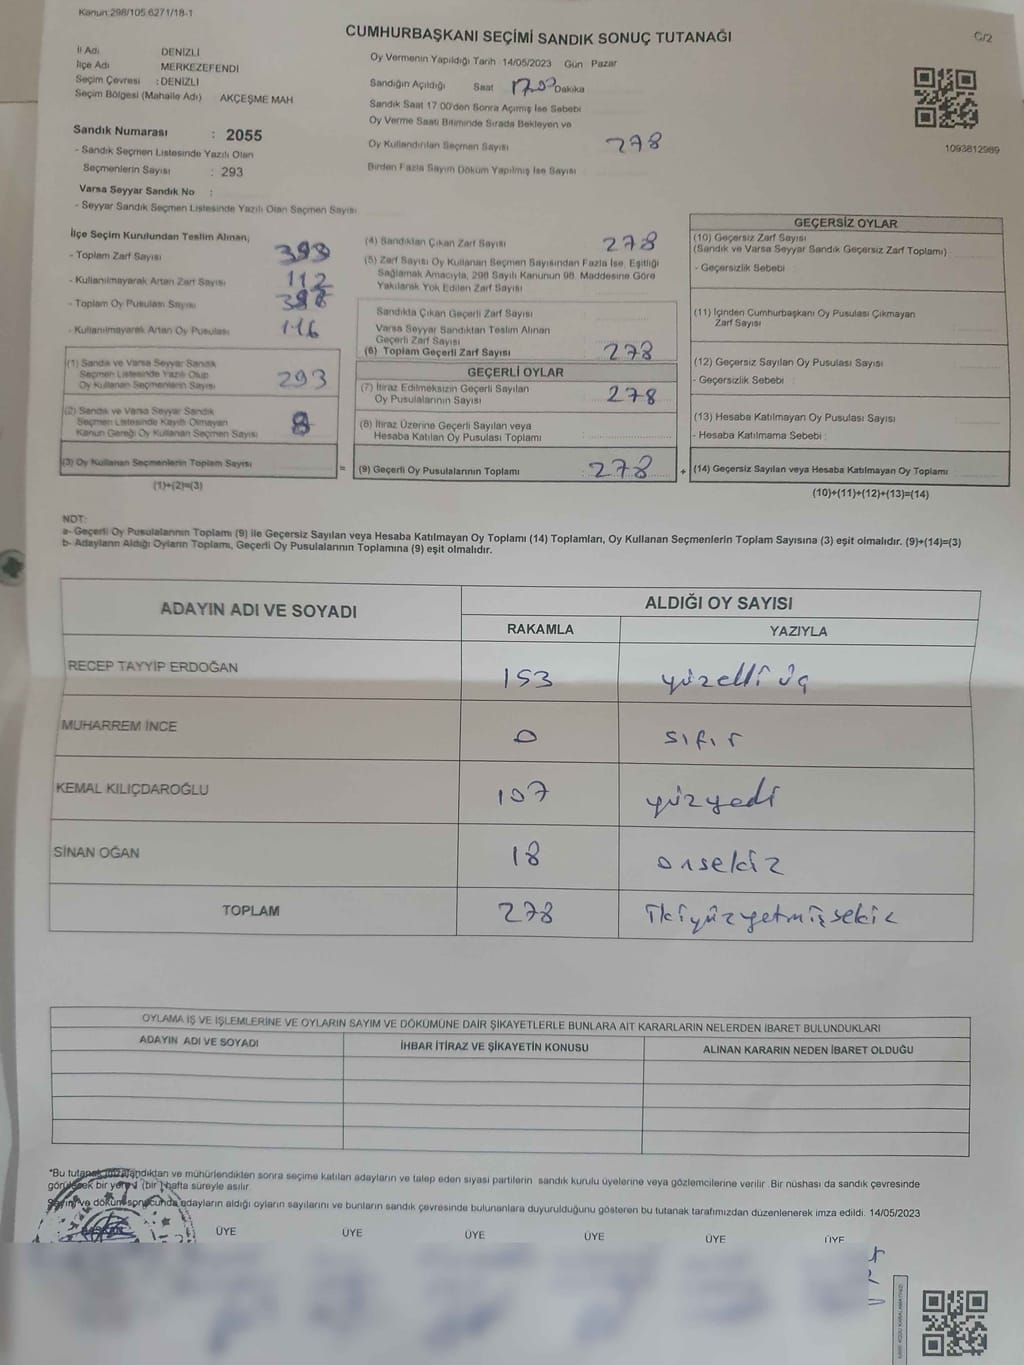 Kanun:298/105.6271/18-1
CUMHURBAŞKANI SEÇİMİ SANDIK SONUÇ TUTANAĞI
C/2
İl Adı DENİZLİ
İlçe Adı MERKEZEFENDİ
Seçim Çevresi : DENİZLİ
Seçim Bölgesi (Mahalle Adı) AKÇEŞME MAH.
Oy Vermenin Yapıldığı Tarih : 14/05/2023 Gün : Pazar
Sandığın Açıldığı Saat 17.00 Dakika
Sandık Saat 17.00'den Sonra Açımış İse Sebebi
Oy Verme Saati Bitiminde Sırada Bekleyen ve
Oy Kullandırılan Seçmen Sayısı 278
Birden Fazla Sayım Döküm Yapılmış İse Sayısı
1093812989
Sandık Numarası : 2055
- Sandık Seçmen Listesinde Yazılı Olan
Seçmenlerin Sayısı : 293
Varsa Seyyar Sandık No :
- Seyyar Sandık Seçmen Listesinde Yazılı Olan Seçmen Sayısı
İlçe Seçim Kurulundan Teslim Alınan;
- Toplam Zarf Sayısı 393
- Kullanılmayarak Artan Zarf Sayısı 112
- Toplam Oy Pusulası Sayısı
- Kullanılmayarak Artan Oy Pusulası 116
(1) Sandık ve Varsa Seyyar Sandık
Seçmen Listesinde Yazılı Olup
Oy Kullanan Seçmenlerin Sayısı 293
(2) Sandık ve Varsa Seyyar Sandık
Seçmen Listesinde Kayıtlı Olmayan
Kanun Gereği Oy Kullanan Seçmen Sayısı
(3) Oy Kullanan Seçmenlerin Toplam Sayısı
(1)+(2)=(3)
=
(4) Sandıktan Çıkan Zarf Sayısı 278
(5) Zarf Sayısı Oy Kullanan Seçmen Sayısından Fazla İse, Eşitliği
Sağlamak Amacıyla, 298 Sayılı Kanunun 98. Maddesine Göre
Yakılarak Yok Edilen Zarf Sayısı
Sandıkta Çıkan Geçerli Zarf Sayısı
Varsa Seyyar Sandıktan Teslim Alınan
Geçerli Zarf Sayısı
(6) Toplam Geçerli Zarf Sayısı 278
GEÇERLİ OYLAR
(7) İtiraz Edilmeksizin Geçerli Sayılan
Oy Pusulalarının Sayısı 278
(8) İtiraz Üzerine Geçerli Sayılan veya
Hesaba Katılan Oy Pusulası Toplamı
(9) Geçerli Oy Pusulalarının Toplamı 278
+
GEÇERSİZ OYLAR
(10) Geçersiz Zarf Sayısı
(Sandık ve Varsa Seyyar Sandık Geçersiz Zarf Toplamı)
- Geçersizlik Sebebi :
(11) İçinden Cumhurbaşkanı Oy Pusulası Çıkmayan
Zarf Sayısı
(12) Geçersiz Sayılan Oy Pusulası Sayısı
- Geçersizlik Sebebi :
(13) Hesaba Katılmayan Oy Pusulası Sayısı
- Hesaba Katılmama Sebebi :
(14) Geçersiz Sayılan veya Hesaba Katılmayan Oy Toplamı
(10)+(11)+(12)+(13)=(14)
NOT:
a- Geçerli Oy Pusulalarının Toplamı (9) ile Geçersiz Sayılan veya Hesaba Katılmayan Oy Toplamı (14) Toplamları, Oy Kullanan Seçmenlerin Toplam Sayısına (3) eşit olmalıdır. (9)+(14)=(3)
b- Adayların Aldığı Oyların Toplamı, Geçerli Oy Pusulalarının Toplamına (9) eşit olmalıdır.
ADAYIN ADI VE SOYADI
ALDIĞI OY SAYISI
RAKAMLA YAZIYLA
RECEP TAYYİP ERDOĞAN 153 yüzelli üç
MUHARREM İNCE 0 sıfır
KEMAL KILIÇDAROĞLU 107 yüzyedi
SİNAN OĞAN 18 onsekiz
TOPLAM 278 ikiyüzyetmişsekiz
OYLAMA İŞ VE İŞLEMLERİNE VE OYLARIN SAYIM VE DÖKÜMÜNE DAİR ŞİKAYETLERLE BUNLARA AİT KARARLARIN NELERDEN İBARET BULUNDUKLARI
ADAYIN ADI VE SOYADI İHBAR İTİRAZ VE ŞİKAYETİN KONUSU ALINAN KARARIN NEDEN İBARET OLDUĞU
*Bu tutanak imzalandıktan ve mühürlendikten sonra seçime katılan adayların ve talep eden siyasi partilerin sandık kurulu üyelerine veya gözlemcilerine verilir. Bir nüshası da sandık çevresinde
görülecek bir yere 1 (bir) hafta süreyle asılır.
Sayım ve döküm sonucunda adayların aldığı oyların sayılarını ve bunların sandık çevresinde bulunanlara duyurulduğunu gösteren bu tutanak tarafımızdan düzenlenerek imza edildi. 14/05/2023
ÜYE ÜYE ÜYE ÜYE ÜYE ÜYE